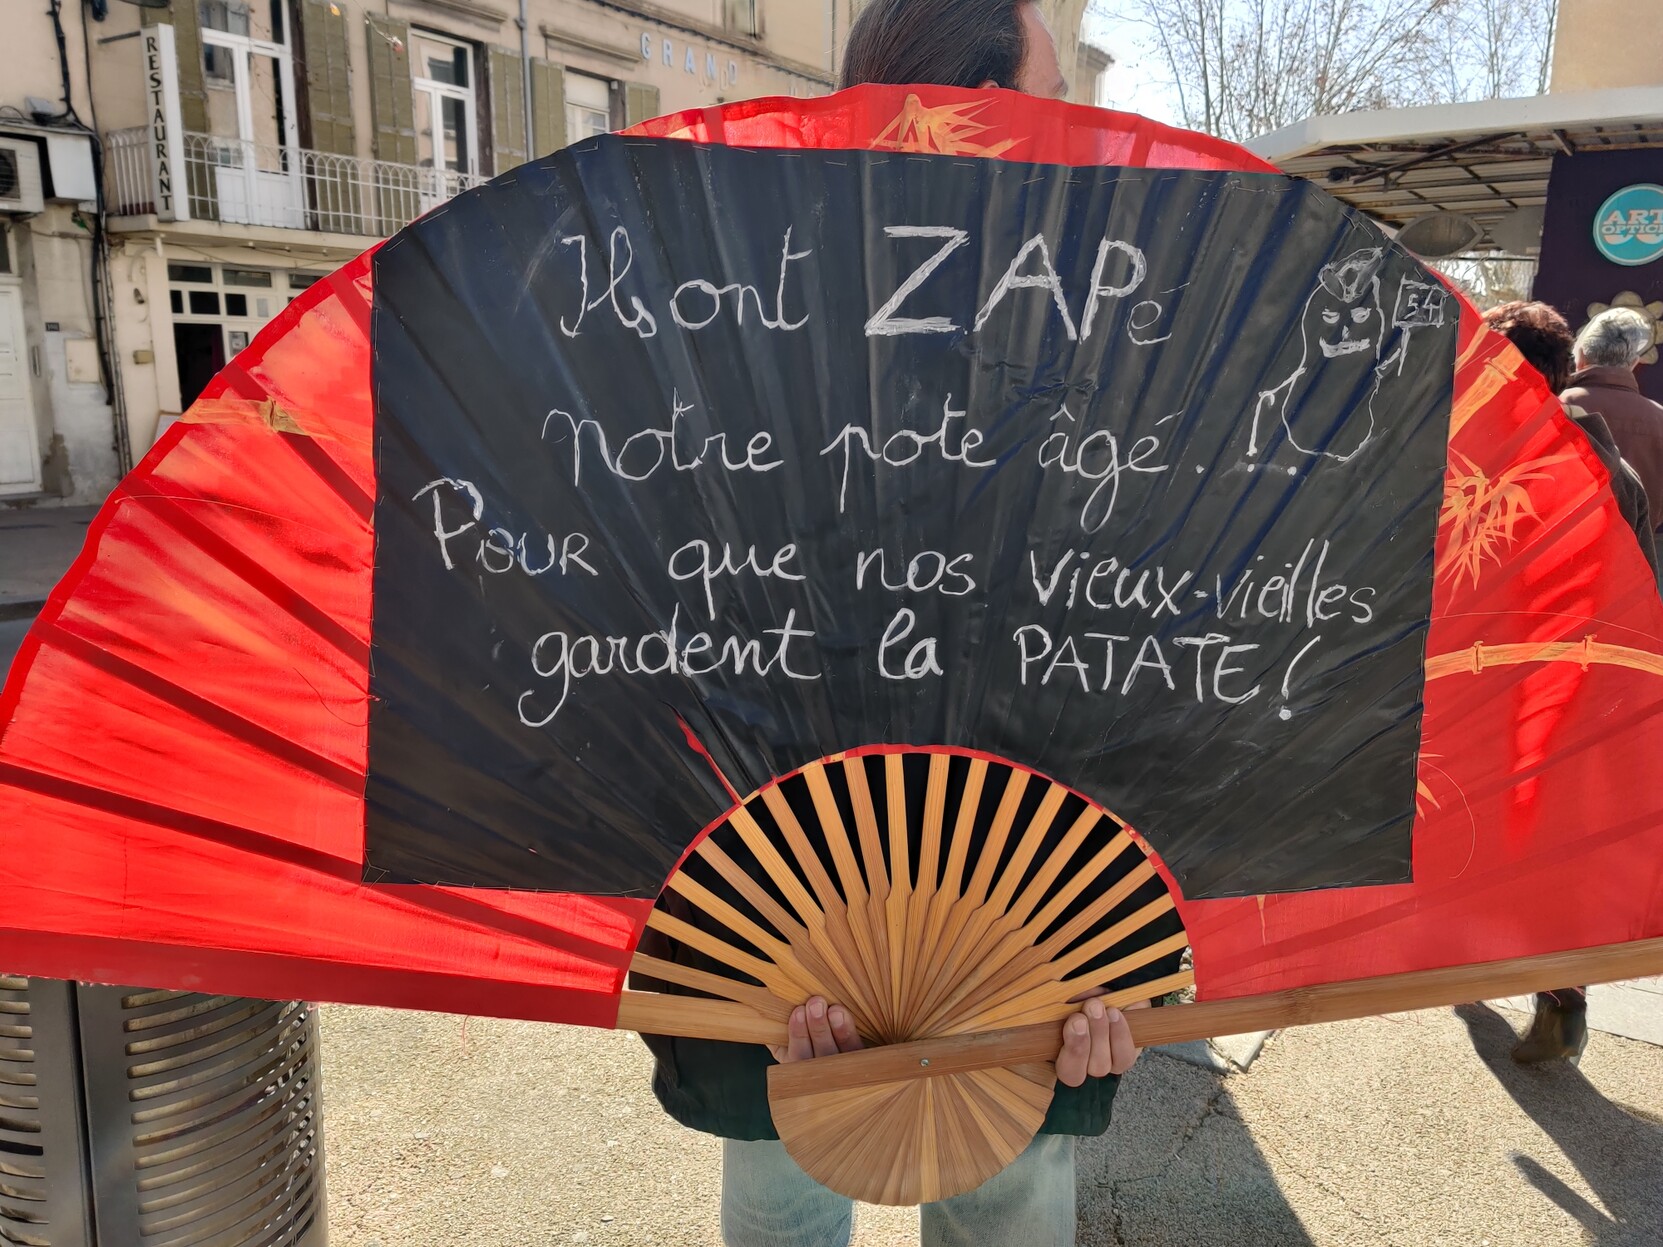 RESTAURANT
GRAND
ART
OPTIC
Ils ont ZAPé
notre pote âgé. !..
POUR que nos vieux-vieilles
gardent la PATATE !